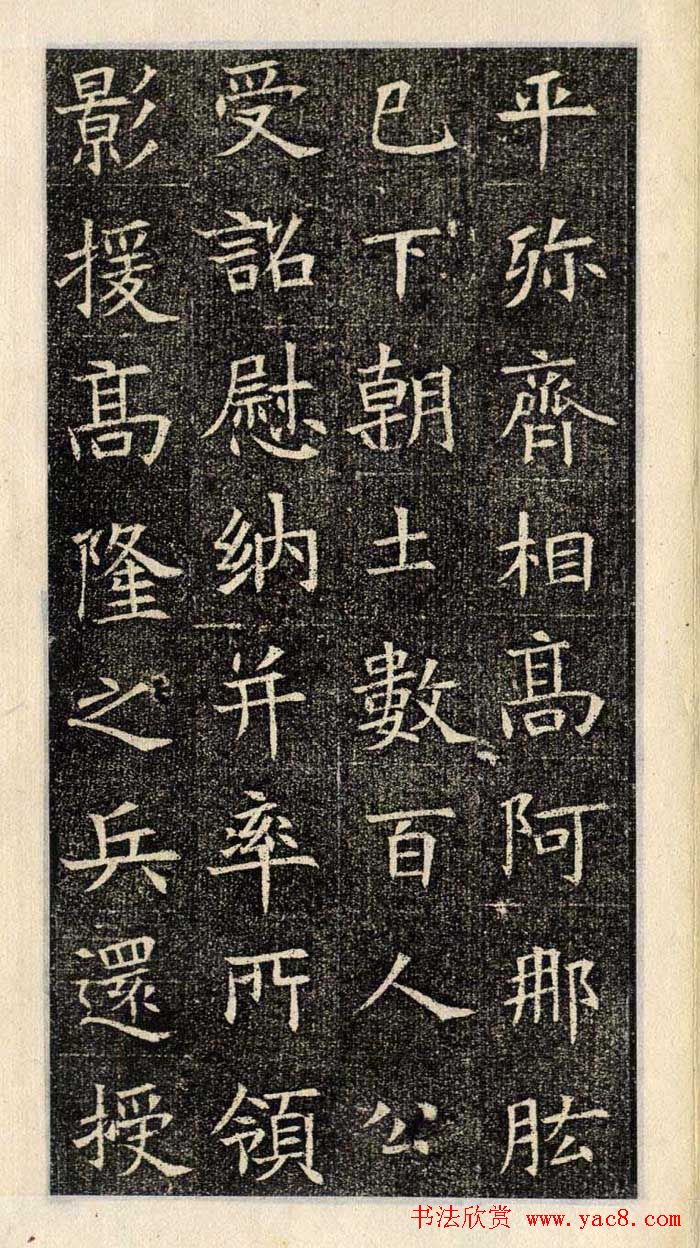 平殄齊相髙阿那肱
已下朝士數百人公
受詔慰納并率所領
影援髙隆之兵還授
书法欣赏 www.yac8.com